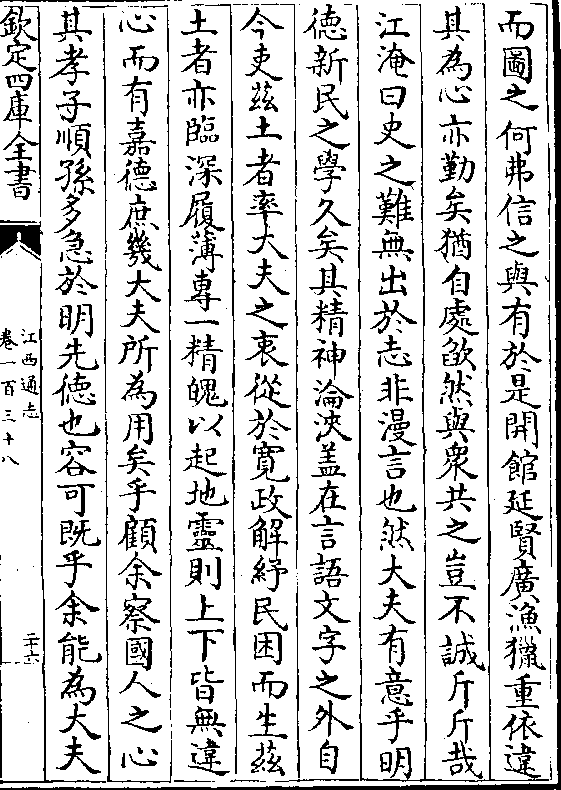 而圖之何弗信之與有於是開館延賢廣漁獵重依違
其為心亦勤矣猶自處欿然與衆共之豈不誠斤斤哉
江淹曰史之難無出於志非漫言也然大夫有意乎明
德新民之學久矣其精神淪浹盖在言語文字之外自
今吏茲土者率大夫之衷從於寛政解紓民困而生茲
土者亦臨深履薄專一精魄以起地靈則上下皆無違
心而有嘉德庶幾大夫所為用矣乎顧余察國人之心
其孝子順孫多急於明先德也容可既乎余能為大夫
欽定四庫全書
江西通志
卷一百三十八
二十六